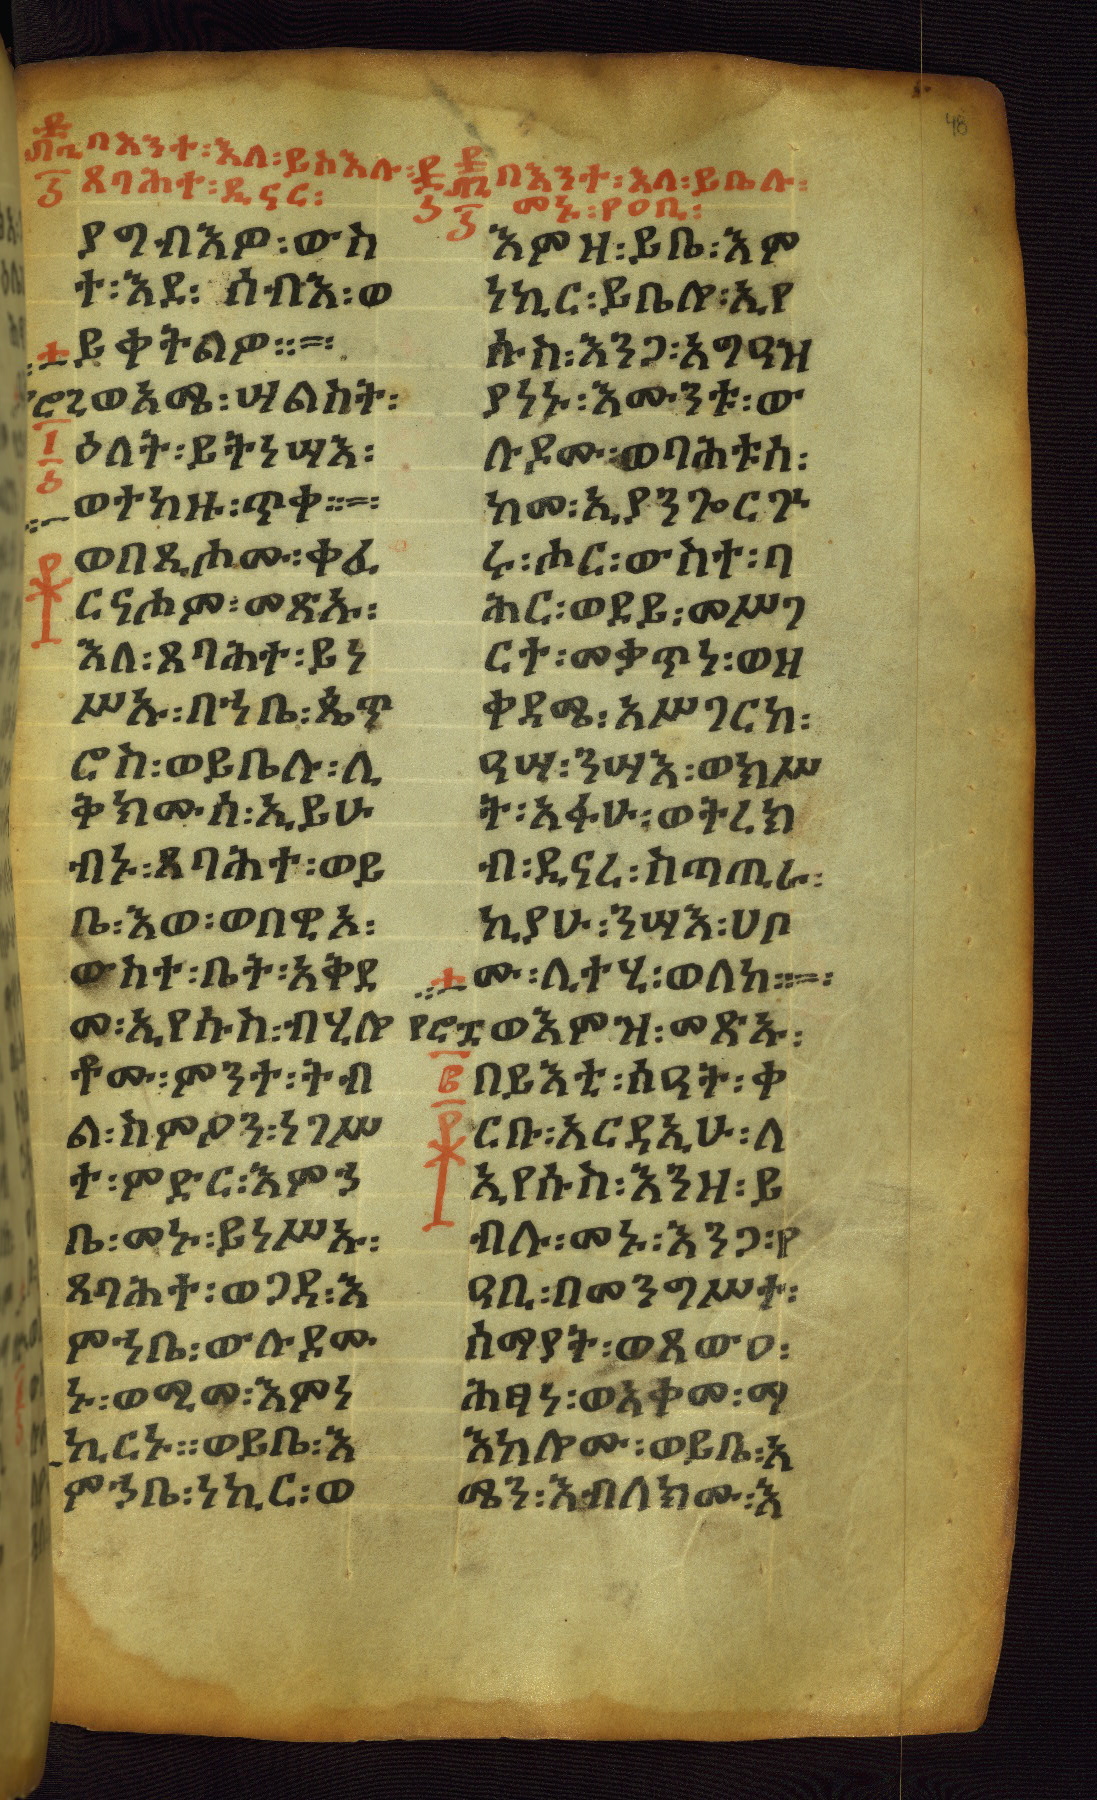 በእንተ፡እለ፡ይስእሉ፡
ጸባሕተ፡ዲናር፡
ያግብእዎ፡ውስ
ተ፡እደ፡ ሰብእ፡ወ
ይቀትልዎ።
ወአሜ፡ሣልስት፡
ዕለት፡ይትነሣእ፡
ወተከዙ፡ጥቀ።
ወበጺሖሙ፡ቀፈ
ርናሖም፡መጽኡ፡
እለ፡ጸባሕተ፡ይነ
ሥኡ፡በኀቤ፡ጴጥ
ሮስ፡ወይቤሉ፡ሊ
ቅክሙሰ፡ኢይሁ
ብኑ፡ጸባሕተ፡ወይ
ቤ፡እወ፡ወበዊእ፡
ውስተ፡ቤት፡አቅደ
መ፡ኢየሱስ፡ብሂሎ
ቶሙ፡ምንተ፡ትብ
ል፡ስምዖን፡ነገሥ
ተ፡ምድር፡እምኀ
ቤ፡መኑ፡ይነሥኡ፡
ጸባሕተ፡ወጋዳ፡እ
ምኀቤ፡ውሉደሙ
ኑ፡ወሚመ፡እምነ
ኪርኑ፡፡ወይቤ፡እ
ምኀቤ፡ነኪር፡ወ
በእንተ፡እለ፡ይቤሉ፡
መኑ፡የዐቢ፡
እምዝ፡ይቤ፡እም
ነኪር፡ይቤሎ፡ኢየ
ሱስ፡እንጋ፡አግዓዝ
ያነኑ፡እሙንቱ፡ው
ሉደሙ፡ወባሕቱሰ፡
ከመ፡ኢያንጐርጕ
ሩ፡ሖር፡ውስተ፡ባ
ሕር፡ወደይ፡መሥገ
ርተ፡መቃጥነ፡ወዘ
ቀዳሜ፡አሥገርከ፡
ዓሣ፡ንሣእ፡ወክሥ
ት፡አፉሁ፡ወትረክ
ብ፡ዲናረ፡ስጣጢራ፡
ኪያሁ፡ንሣእ፡ሀቦ
ሙ፡ሊተሂ፡ወለከ።
ወእምዝ፡መጽኡ፡
በይእቲ፡ሰዓት፡ቀ
ርቡ፡አርዳኢሁ፡ለ
ኢየሱስ፡እንዘ፡ይ
ብሉ፡መኑ፡እንጋ፡የ
ዓቢ፡በመንግሥተ፡
ሰማያት፡ወጸውዐ፡
ሕፃነ፡ወአቀመ፡ማ
እከሎሙ፡ወይቤ፡አ
ሜን፡እብለክሙ፡እ